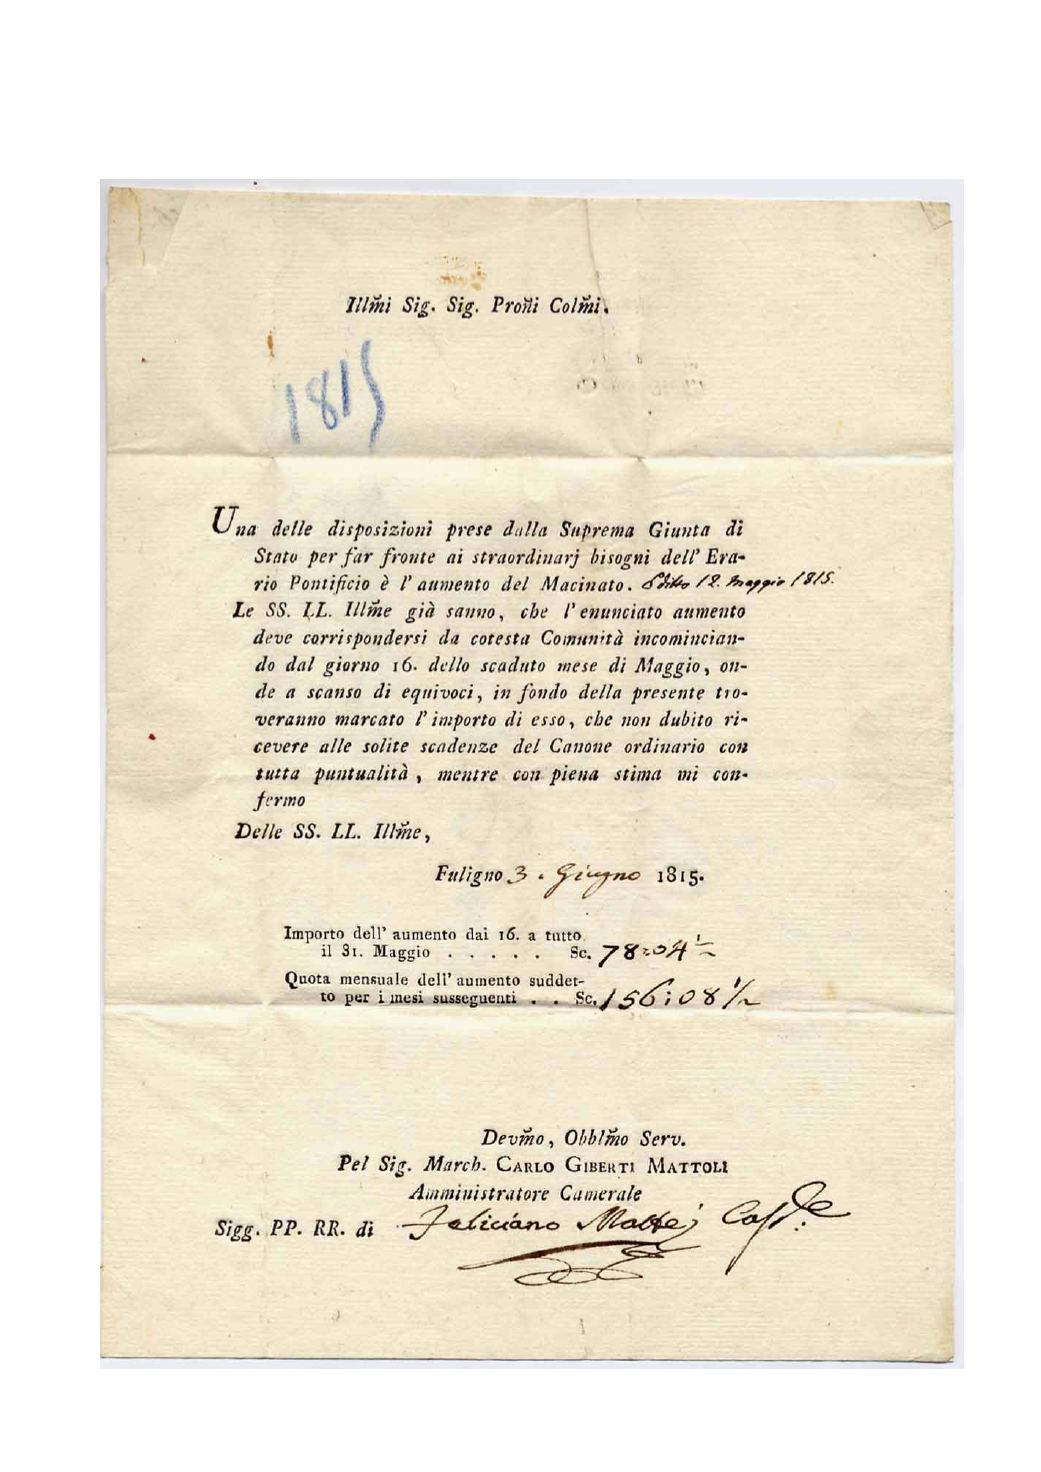 Illm̃i Sig. Sig. Proñi Colm̃i.
1815
Una delle disposizioni prese dalla Suprema Giunta di
Stato per far fronte ai straordinarj bisogni dell' Era-
rio Pontificio è l'aumento del Macinato. Editto 12. Maggio 1815.
Le SS. LL. Illm̃e già sanno, che l'enunciato aumento
deve corrispondersi da cotesta Comunità incomincian-
do dal giorno 16. dello scaduto mese di Maggio, on-
de a scanso di equivoci, in fondo della presente tro-
veranno marcato l'importo di esso, che non dubito ri-
cevere alle solite scadenze del Canone ordinario con
tutta puntualità, mentre con piena stima mi con-
fermo
Delle SS. LL. Illm̃e,
Fuligno 3. Giugno 1815.
Importo dell' aumento dai 16. a tutto
il 31. Maggio . . . . . Sc. 78:04 1/-
Quota mensuale dell' aumento suddet-
to per i mesi susseguenti . . Sc. 156:08 1/2
Devm̃o, Obblm̃o Serv.
Pel Sig. March. CARLO GIBERTI MATTOLI
Amministratore Camerale
Sigg. PP. RR. di Feliciano Mattej